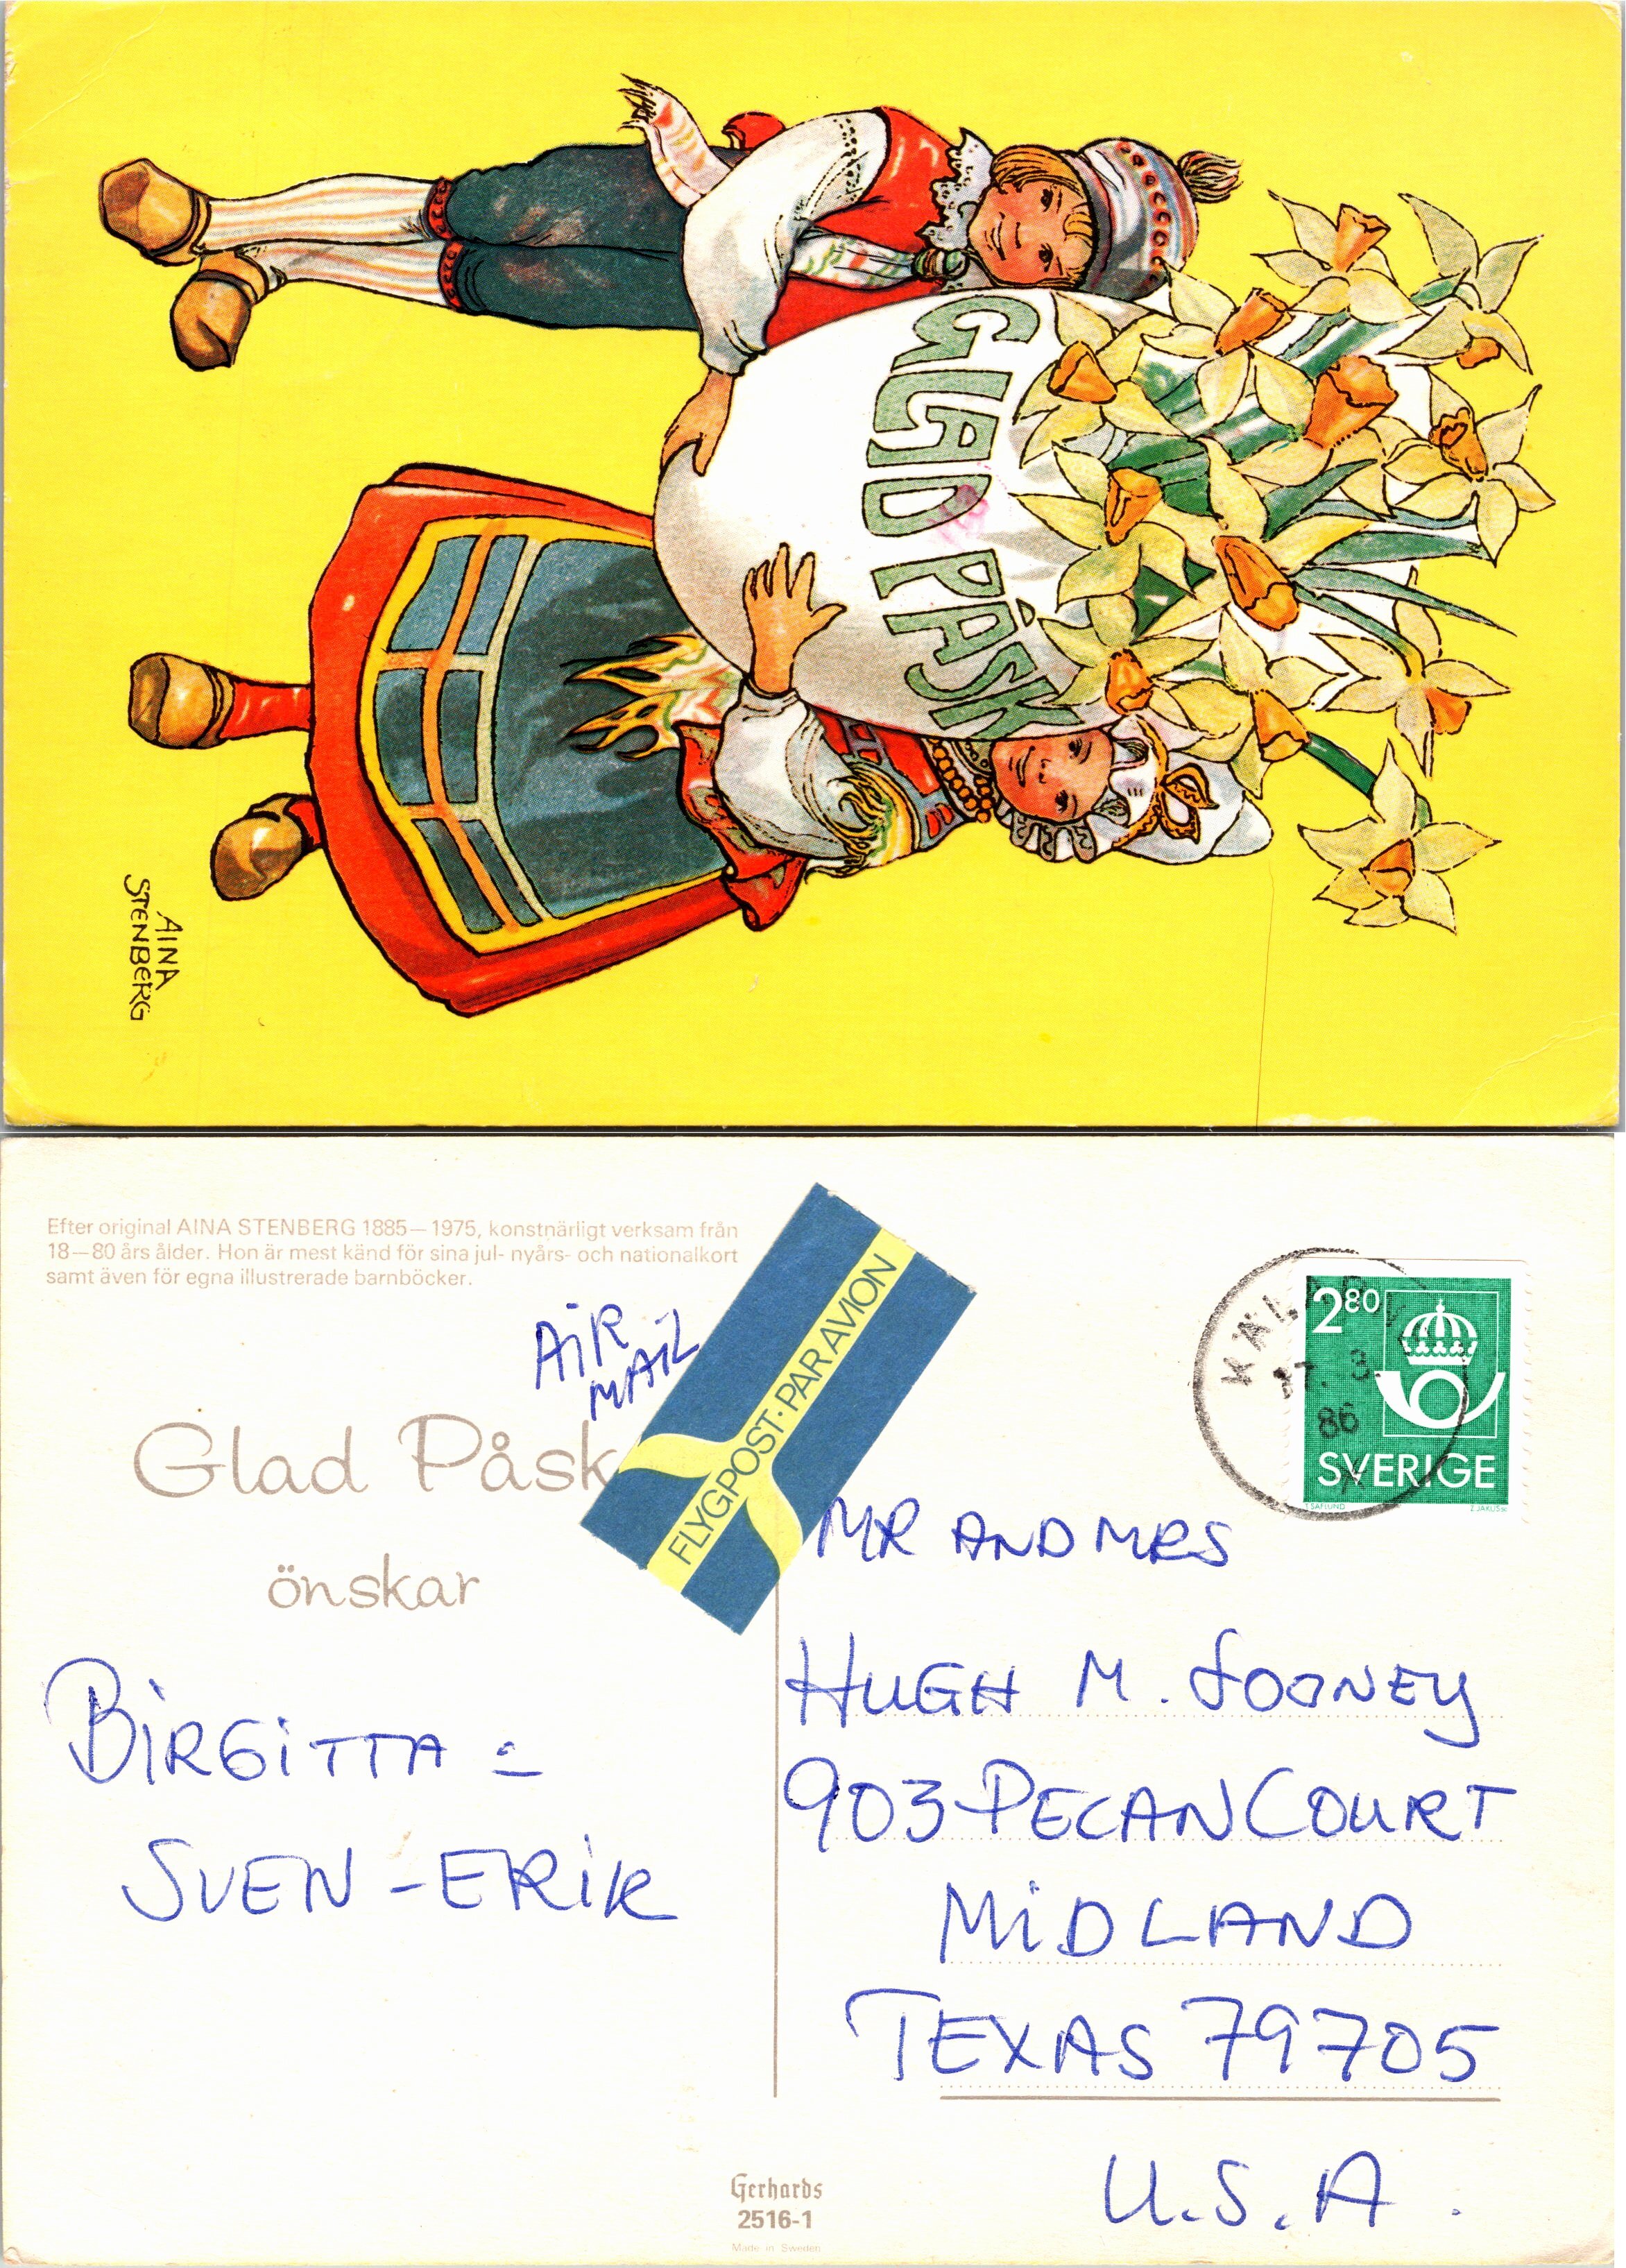 GLAD PÅSK
AINA
STENBERG
Efter original AINA STENBERG 1885—1975, konstnärligt verksam från
18—80 års ålder. Hon är mest känd för sina jul- nyårs- och nationalkort
samt även för egna illustrerade barnböcker.
AIR
MAIL
FLYGPOST·PAR AVION
2 80
17. 3
86
SVERIGE
Glad Påsk
önskar
BIRGITTA =
SVEN-ERIK
MR AND MRS
HUGH M. LOONEY
903 PECAN COURT
MIDLAND
TEXAS 79705
U.S.A.
Gerhards
2516-1
Made in Sweden